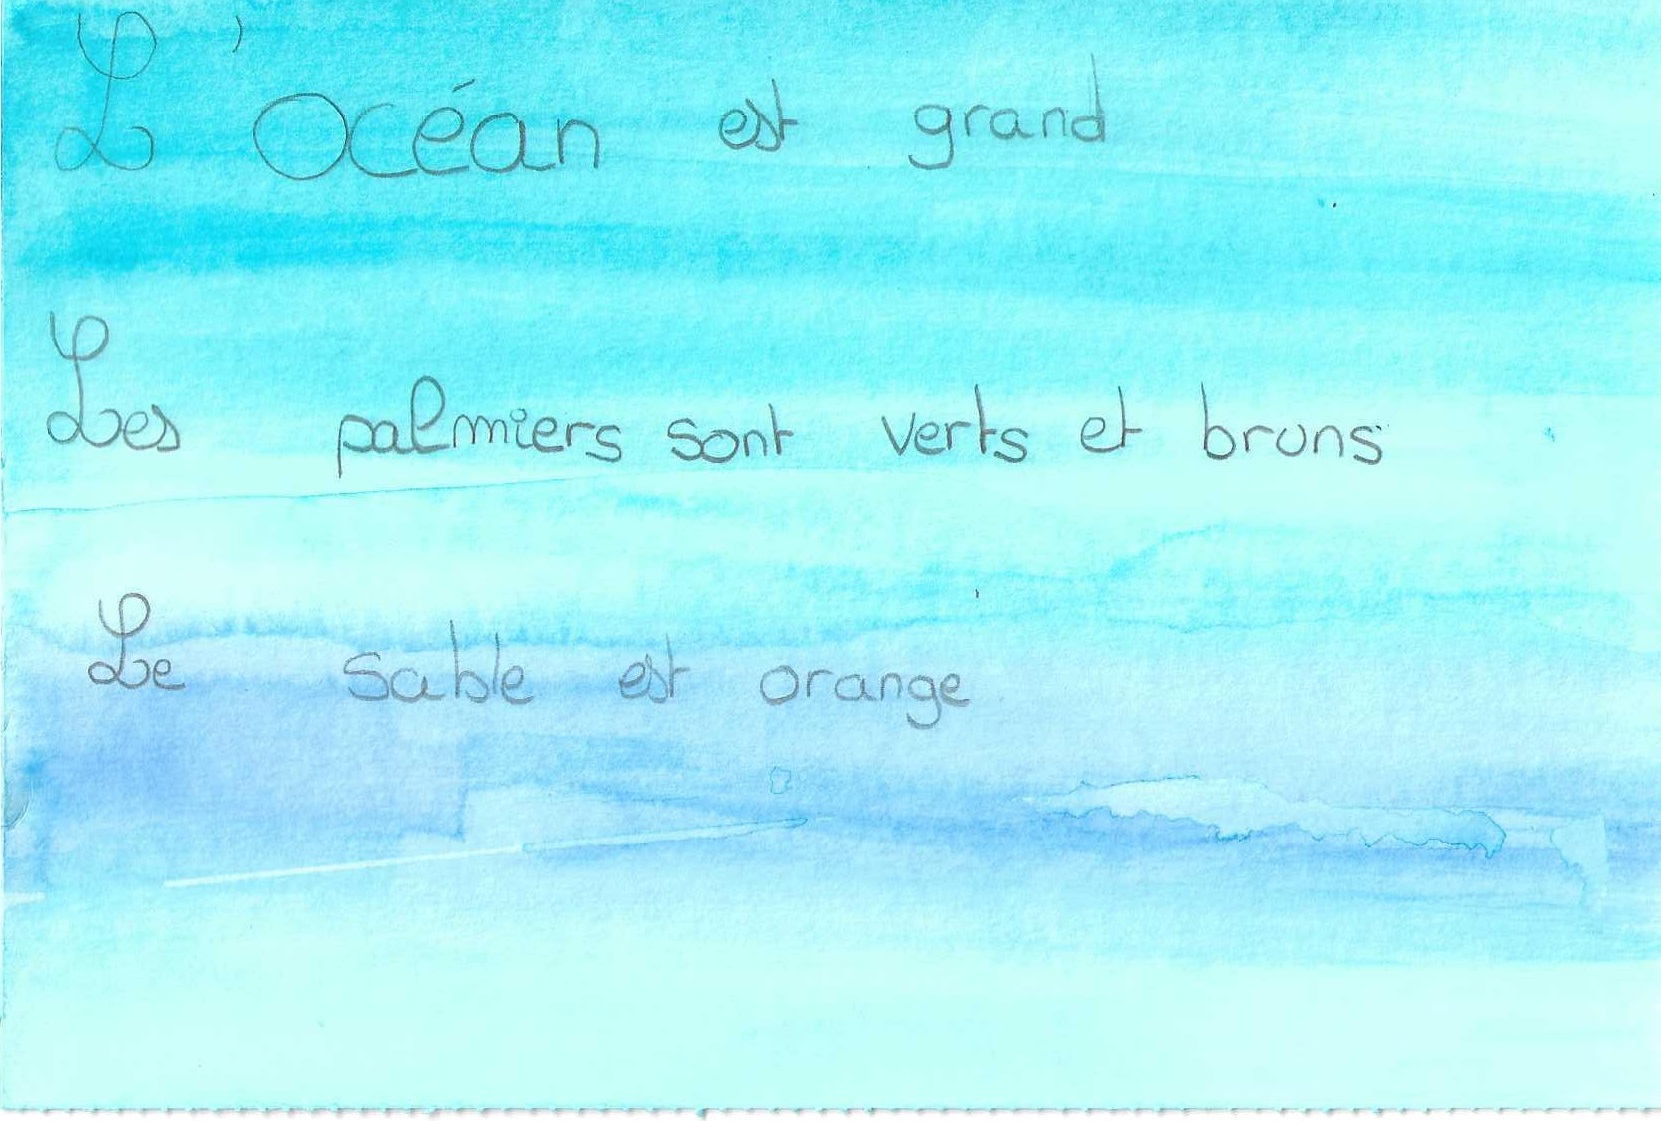 L'Océan est grand
Les palmiers sont verts et bruns
Le sable est orange